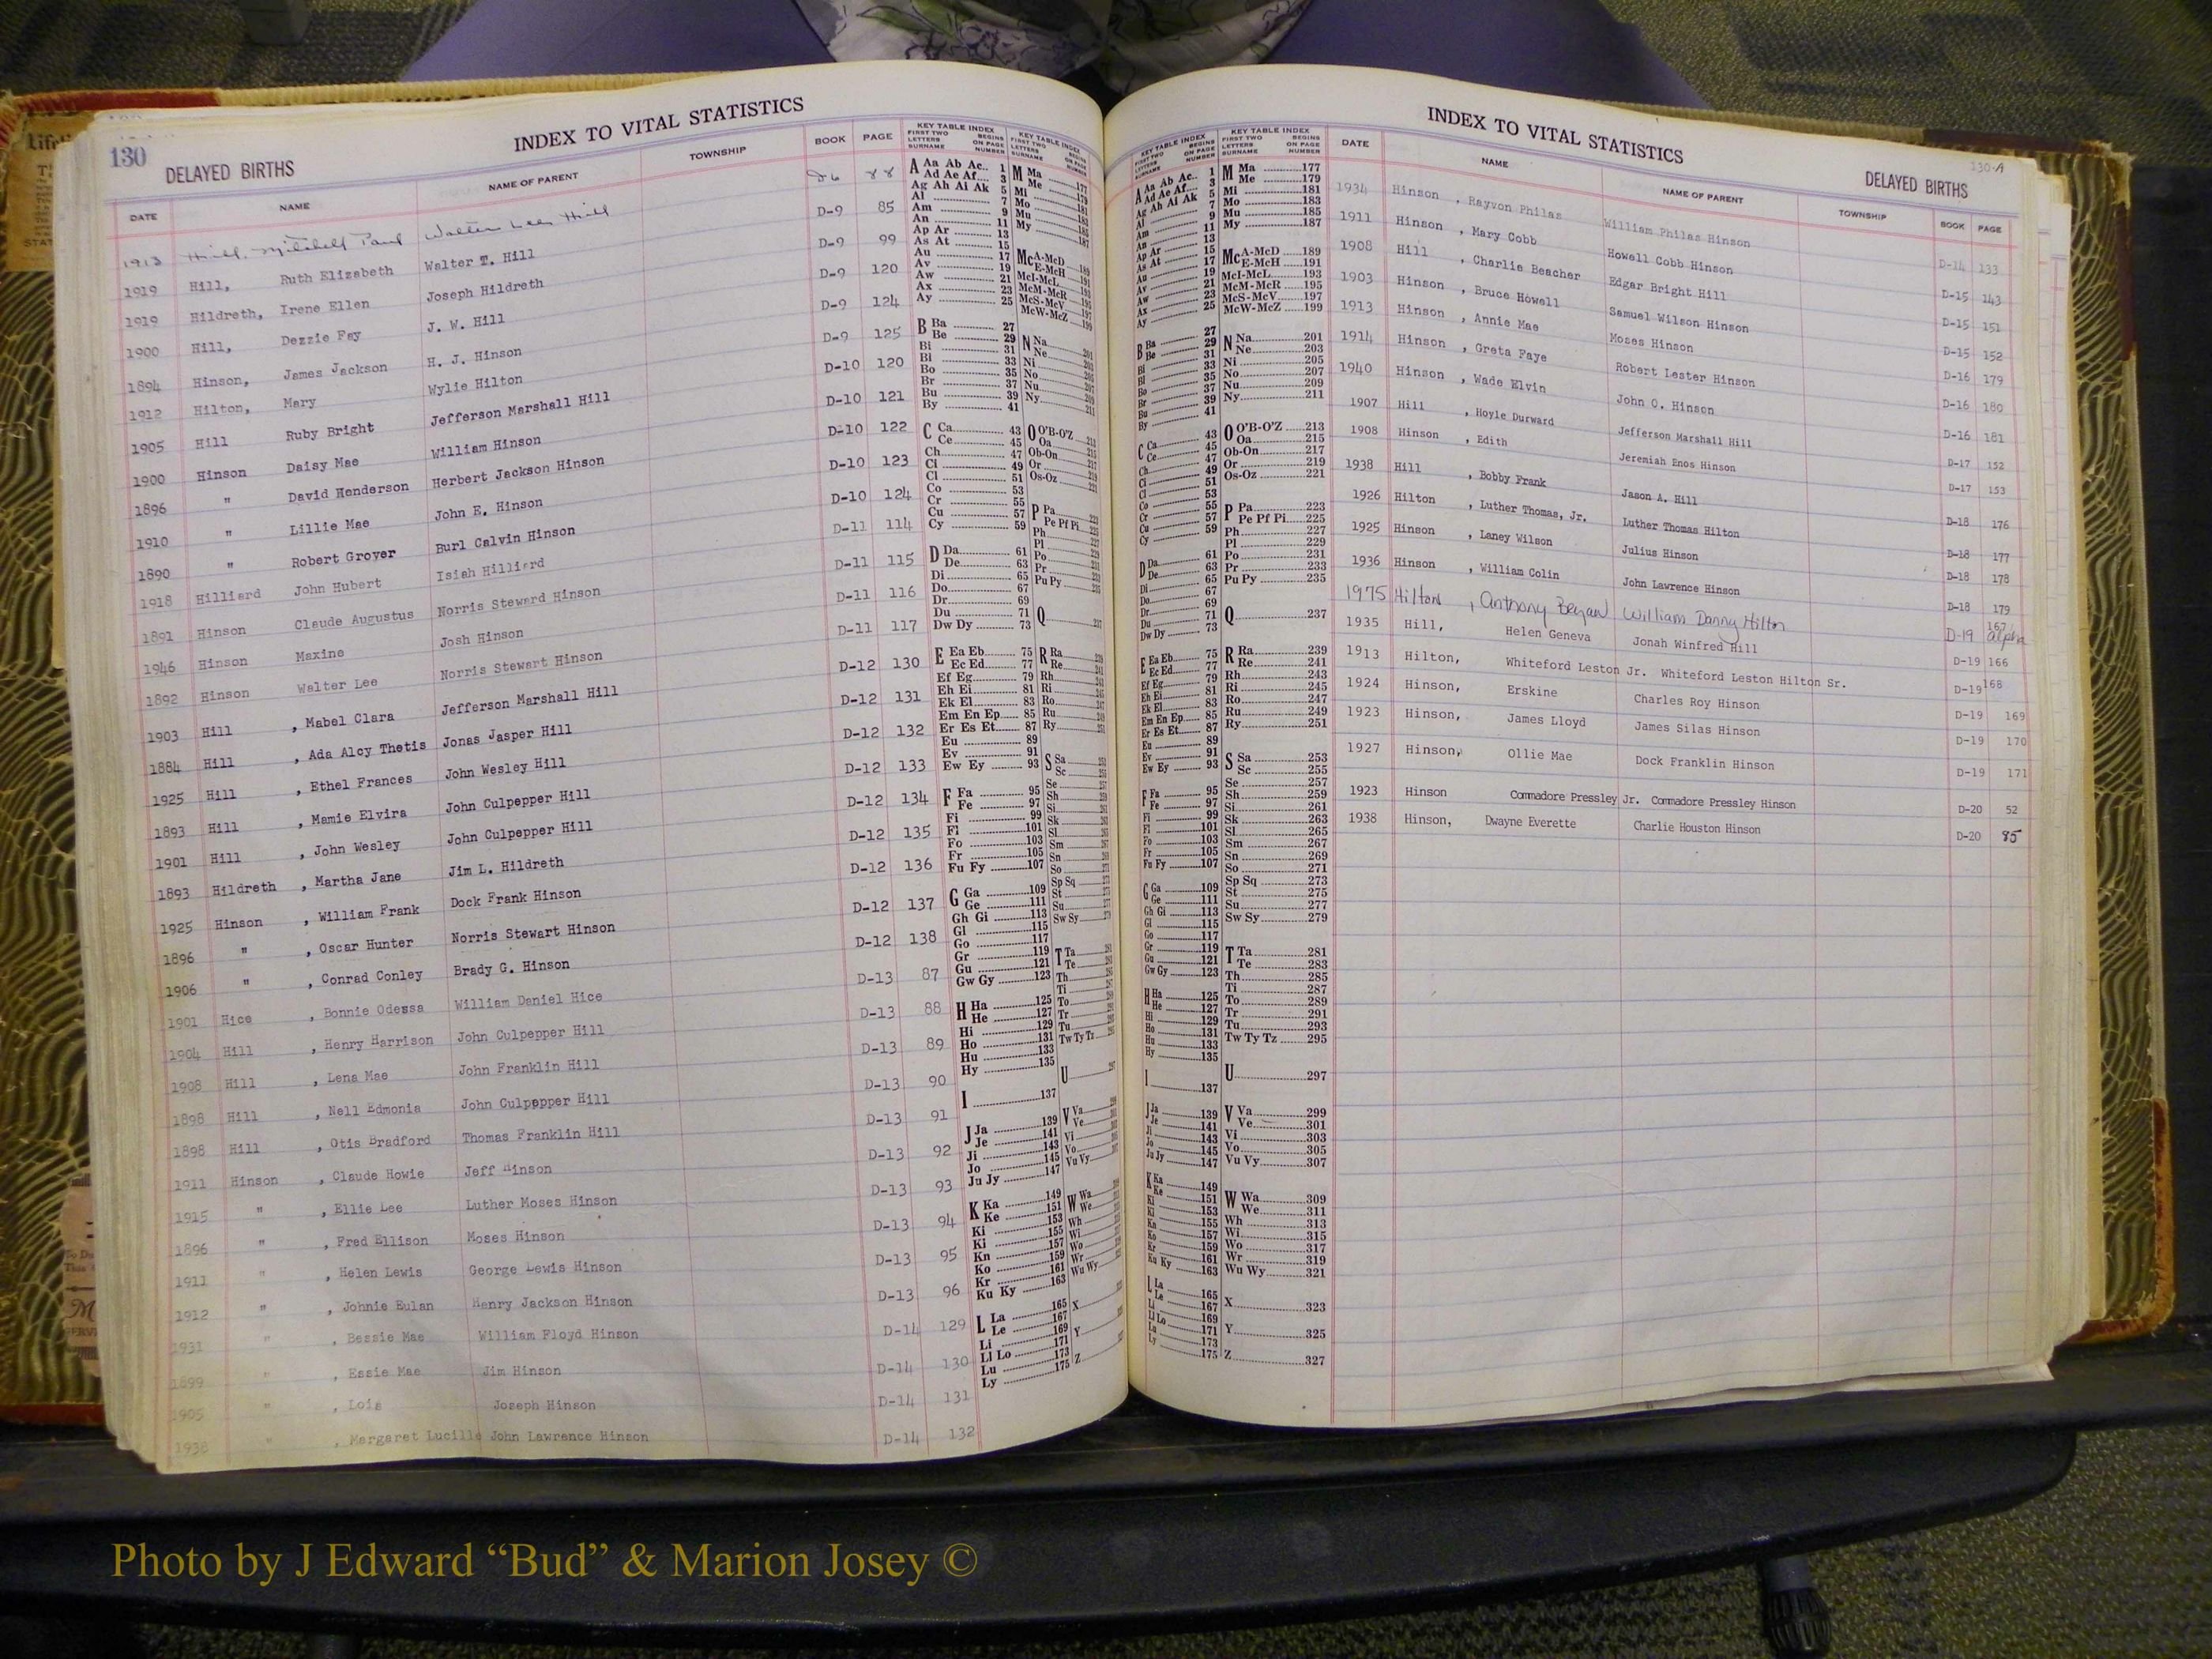 INDEX TO VITAL STATISTICS
130
DELAYED BIRTHS
DATE NAME NAME OF PARENT TOWNSHIP BOOK PAGE
1913 Hill, Mitchell Paul Walter Lee Hill D6 88
1919 Hill, Ruth Elizabeth Walter T. Hill D-9 85
1919 Hildreth, Irene Ellen Joseph Hildreth D-9 99
1900 Hill, Dezzie Fay J. W. Hill D-9 120
1894 Hinson, James Jackson H. J. Hinson D-9 124
1912 Hilton, Mary Wylie Hilton D-9 125
1905 Hill Ruby Bright Jefferson Marshall Hill D-10 120
1900 Hinson Daisy Mae William Hinson D-10 121
1896 " David Henderson Herbert Jackson Hinson D-10 122
1910 " Lillie Mae John E. Hinson D-10 123
1890 " Robert Grover Burl Calvin Hinson D-10 124
1918 Hilliard John Hubert Isiah Hilliard D-11 114
1891 Hinson Claude Augustus Norris Steward Hinson D-11 115
1946 Hinson Maxine Josh Hinson D-11 116
1892 Hinson Walter Lee Norris Stewart Hinson D-11 117
1903 Hill , Mabel Clara Jefferson Marshall Hill D-12 130
1884 Hill , Ada Alcy Thetis Jonas Jasper Hill D-12 131
1925 Hill , Ethel Frances John Wesley Hill D-12 132
1893 Hill , Mamie Elvira John Culpepper Hill D-12 133
1901 Hill , John Wesley John Culpepper Hill D-12 134
1893 Hildreth , Martha Jane Jim L. Hildreth D-12 135
1925 Hinson , William Frank Dock Frank Hinson D-12 136
1896 " , Oscar Hunter Norris Stewart Hinson D-12 137
1906 " , Conrad Conley Brady G. Hinson D-12 138
1901 Hice , Bonnie Odessa William Daniel Hice D-13 87
1904 Hill , Henry Harrison John Culpepper Hill D-13 88
1908 Hill , Lena Mae John Franklin Hill D-13 89
1898 Hill , Nell Edmonia John Culpepper Hill D-13 90
1898 Hill , Otis Bradford Thomas Franklin Hill D-13 91
1911 Hinson , Claude Howie Jeff Hinson D-13 92
1915 " , Ellie Lee Luther Moses Hinson D-13 93
1896 " , Fred Ellison Moses Hinson D-13 94
1911 " , Helen Lewis George Lewis Hinson D-13 95
1912 " , Johnie Eulan Henry Jackson Hinson D-13 96
1931 " , Bessie Mae William Floyd Hinson D-14 129
1899 " , Essie Mae Jim Hinson D-14 130
1905 " , Lois Joseph Hinson D-14 131
1938 " , Margaret Lucille John Lawrence Hinson D-14 132
INDEX TO VITAL STATISTICS
130-A
DELAYED BIRTHS
KEY TABLE INDEX
FIRST TWO LETTERS SURNAME BEGINS ON PAGE NUMBER
A Aa Ab Ac.. 1
Ad Ae Af.... 3
Ag Ah Ai Ak 5
Al 7
Am 9
An 11
Ap Ar 13
As At 15
Au 17
Av 19
Aw 21
Ax 23
Ay 25
B Ba 27
Be 29
Bi 31
Bl 33
Bo 35
Br 37
Bu 39
By 41
C Ca 43
Ce 45
Ch 47
Ci 49
Cl 51
Co 53
Cr 55
Cu 57
Cy 59
D Da 61
De 63
Di 65
Do 67
Dr 69
Du 71
Dw Dy 73
E Ea Eb 75
Ec Ed 77
Ef Eg 79
Eh Ei 81
Ek El 83
Em En Ep 85
Er Es Et 87
Eu 89
Ev 91
Ew Ey 93
F Fa 95
Fe 97
Fi 99
Fl 101
Fo 103
Fr 105
Fu Fy 107
G Ga 109
Ge 111
Gh Gi 113
Gl 115
Go 117
Gr 119
Gu 121
Gw Gy 123
H Ha 125
He 127
Hi 129
Ho 131
Hu 133
Hy 135
I 137
J Ja 139
Je 141
Ji 143
Jo 145
Ju Jy 147
K Ka 149
Ke 151
Ki 153
Kn 157
Ko 159
Kr 161
Ku Ky 163
L La 165
Le 167
Li 169
Ll Lo 171
Lu 173
Ly 175
M Ma 177
Me 179
Mi 181
Mo 183
Mu 185
My 187
McA-McD 189
McE-McH 191
McI-McL 193
McM-McR 195
McS-McV 197
McW-McZ 199
N Na 201
Ne 203
Ni 205
No 207
Nu 209
Ny 211
O O'B-O'Z 213
Oa 215
Ob-On 217
Or 219
Os-Oz 221
P Pa 223
Pe Pf Pi 225
Ph 227
Pl 229
Po 231
Pr 233
Pu Py 235
Q 237
R Ra 239
Re 241
Rh 243
Ri 245
Ro 247
Ru 249
Ry 251
S Sa 253
Sc 255
Se 257
Sh 259
Si 261
Sk 263
Sl 265
Sm 267
Sn 269
So 271
Sp Sq 273
St 275
Su 277
Sw Sy 279
T Ta 281
Te 283
Th 285
Ti 287
To 289
Tr 291
Tu 293
Tw Ty Tz 295
U 297
V Va 299
Ve 301
Vi 303
Vo 305
Vu Vy 307
W Wa 309
We 311
Wh 313
Wi 315
Wo 317
Wr 319
Wu Wy 321
X 323
Y 325
Z 327
DATE NAME NAME OF PARENT TOWNSHIP BOOK PAGE
1934 Hinson , Rayvon Philas William Philas Hinson D-14 133
1911 Hinson , Mary Cobb Howell Cobb Hinson D-15 143
1908 Hill , Charlie Beacher Edgar Bright Hill D-15 151
1903 Hinson , Bruce Howell Samuel Wilson Hinson D-15 152
1913 Hinson , Annie Mae Moses Hinson D-16 179
1914 Hinson , Greta Faye Robert Lester Hinson D-16 180
1940 Hinson , Wade Elvin John O. Hinson D-16 181
1907 Hill , Hoyle Durward Jefferson Marshall Hill D-17 152
1908 Hinson , Edith Jeremiah Enos Hinson D-17 153
1938 Hill , Bobby Frank Jason A. Hill D-18 176
1926 Hilton , Luther Thomas, Jr. Luther Thomas Hilton D-18 177
1925 Hinson , Laney Wilson Julius Hinson D-18 178
1936 Hinson , William Colin John Lawrence Hinson D-18 179
1975 Hilton , Anthony Bryan William Danny Hilton D-19 167 alpha
1935 Hill, Helen Geneva Jonah Winfred Hill D-19 166
1913 Hilton, Whiteford Leston Jr. Whiteford Leston Hilton Sr. D-19 168
1924 Hinson, Erskine Charles Roy Hinson D-19 169
1923 Hinson, James Lloyd James Silas Hinson D-19 170
1927 Hinson, Ollie Mae Dock Franklin Hinson D-19 171
1923 Hinson Commadore Pressley Jr. Commadore Pressley Hinson D-20 52
1938 Hinson, Dwayne Everette Charlie Houston Hinson D-20 85
Photo by J Edward “Bud” & Marion Josey ©